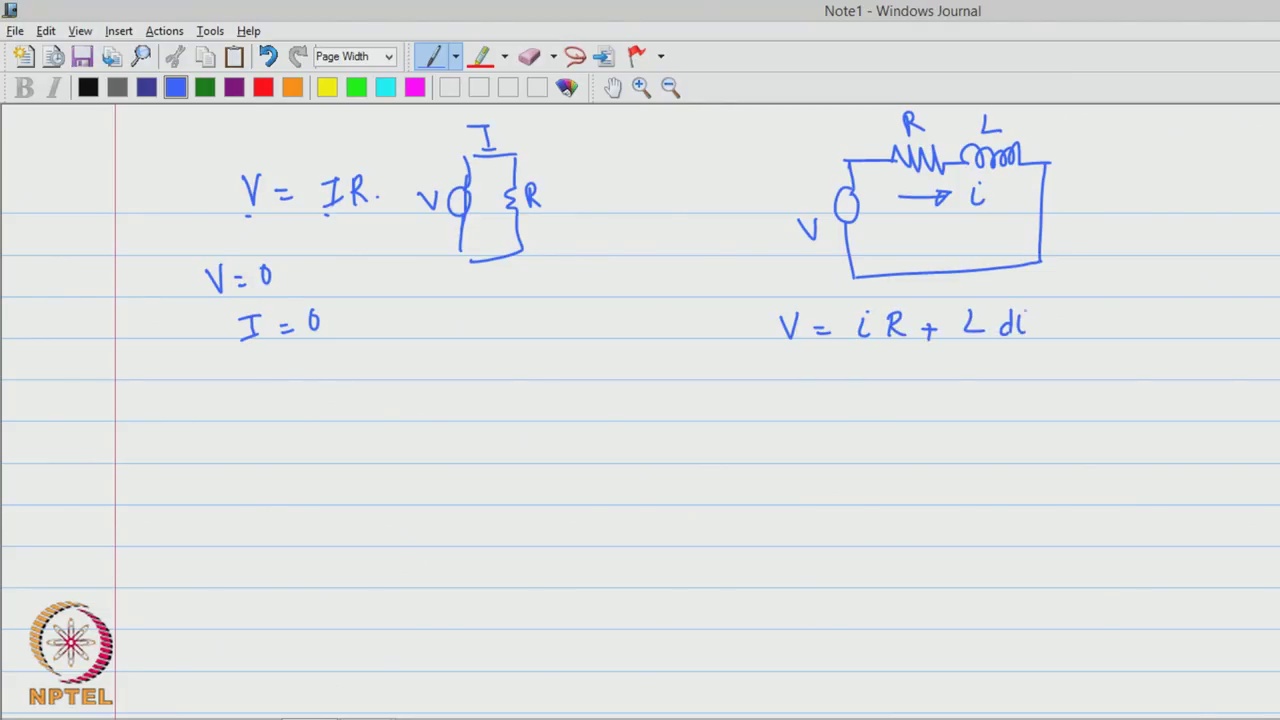 Note1 - Windows Journal
File Edit View Insert Actions Tools Help
Page Width
B I
I
V = IR.
V
R
V = 0
I = 0
R L
i
V
V = i R + L di
NPTEL